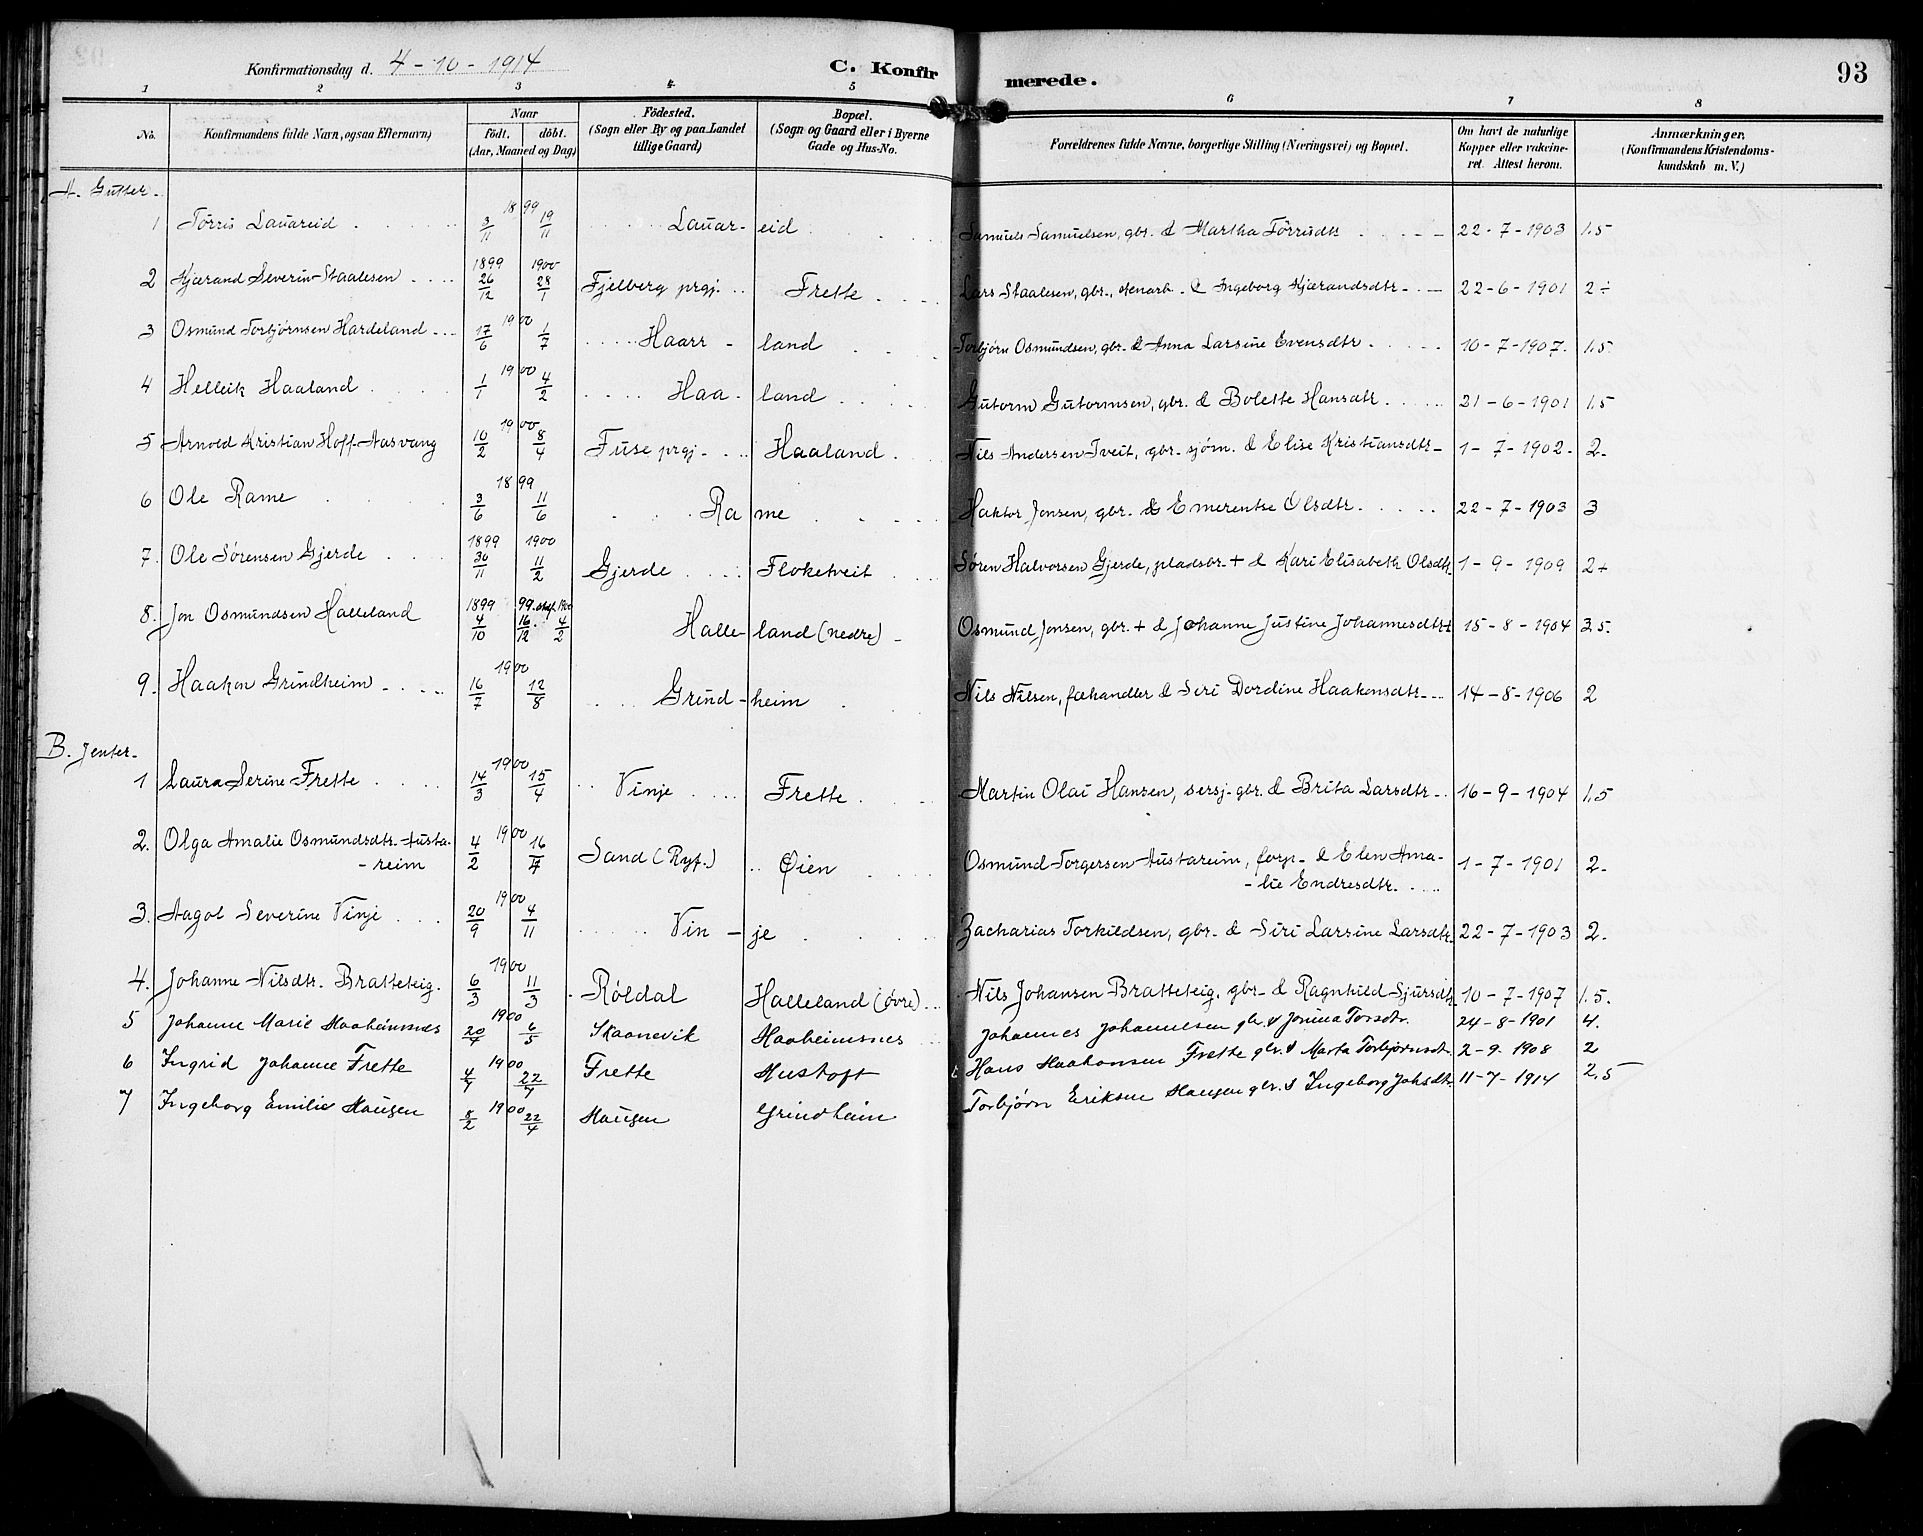 Konfirmationsdag d. 4-10-1914 C. Konfirmerede. 93
1 2 3 4 5 6 7 8
No. Konfirmandens fulde Navn, ogsaa Efternavn) Naar födt. döbt. (Aar, Maaned og Dag) Födested. (Sogn eller By og paa Landet tillige Gaard) Bopæl. (Sogn og Gaard eller i Byerne Gade og Hus-No. Forældrenes fulde Navne, borgerlige Stilling (Næringsvei) og Bopæl. Om havt de naturlige Kopper eller vakcineret. Attest herom. Anmærkninger. (Konfirmandens Kristendomskundskab m. V.)
A. Gutter.
1 Tørris Lauareid 1899 3/11 19/11 Lauar- eid Samuels Samuelsen, gbr. & Martha Tørrisdtr 22-7-1903 1.5
2 Kjærand Severin Staalesen 1899 26/12 1900 28/1 Fjelberg prgj. Frette Lars Staalesen, gbr., stenarb. & Ingeborg Kjærandsdtr 22-6-1901 2÷
3 Osmund Torbjørnsen Hardeland 1900 17/6 1/7 Haarr - land Torbjørn Osmundsen, gbr. & Anna Larsine Evensdtr 10-7-1907. 1.5.
4 Helleik Haaland 1900 1/1 4/2 Haa - land Gutorm Gutormsen, gbr. & Bolette Hansdtr. 21-6-1901 1.5
5 Arnold Kristian Hoff-Aasvang 1900 10/2 8/4 Fuse prgj. Haaland Nils Andersen Tveit, gbr. sjøm. & Elise Kristiansdtr 1-7-1902. 2.
6 Ole Rame 1899 3/6 11/6 Ra me Haktor Jensen, gbr. & Emerentse Olsdtr. 22-7-1903 3
7. Ole Sørensen Gjerde 1899 30/11 1900 11/2 Gjerde Floketveit Søren Halvorsen Gjerde, pladsbr + & Kari Elisabeth Olsdtr. 1-9-1909 2+
8. Jon Osmundsen Halleland 1899 4/10 99. 16/12. 1900 4/2 Halle- land (nedre) Osmund Jonsen, gbr. + & Johanne Justine Johannesdtr+ 15-8-1904 3.5.
9. Haakon Grindheim 1900 16/7 12/8 Grind - heim Nils Nilsen, fæhandler & Siri Dordine Haakonsdtr 14-8-1906 2
B. Jenter.
1 Laura Serine Frette 1900 14/3 15/4 Vinje Frette Martin Olai Hansen, sersj. gbr. & Brita Larsdtr. 16-9-1904 1.5
2. Olga Amalie Osmundsdtr. Austa- 1900 4/2 16/4 Sand (Ryf.) Øien Osmund Torgersen Austareim, forp. & Elen Ama- 1-7-1901 2.
-reim -lie Endresdtr.
3. Aagot Severine Vinje 1900 20/9 4/11 Vin - je Zacharias Torkildsen, gbr. & Siri Larsine Larsdtr. 22-7-1903 2.
4. Johanne Nilsdtr. Bratteteig. 1900 6/3 11/3 Röldal Halleland (øvre) Nils Johansen Bratteteig, gbr. & Ragnhild Sjursdtr 10-7-1907 1.5.
5 Johanne Marie Haaheimsnes 1900 20/4 6/5 Skaanevik Haaheimsnes Johannes Johannesen gbr. & Jonina Torsdtr. 24-8-1901 4.
6 Ingrid Johanne Frette 1900 4/7 22/7 Frette Hustoft Hans Haakonsen Frette gbr. & Marta Torbjørnsdtr. 2-9-1908 2
7 Ingeborg Emilie Haugen 1900 8/2 22/4 Haugen Grindheim Torbjørn Eriksen Haugen gbr. & Ingeborg Johsdtr. 11-7-1914 2.5